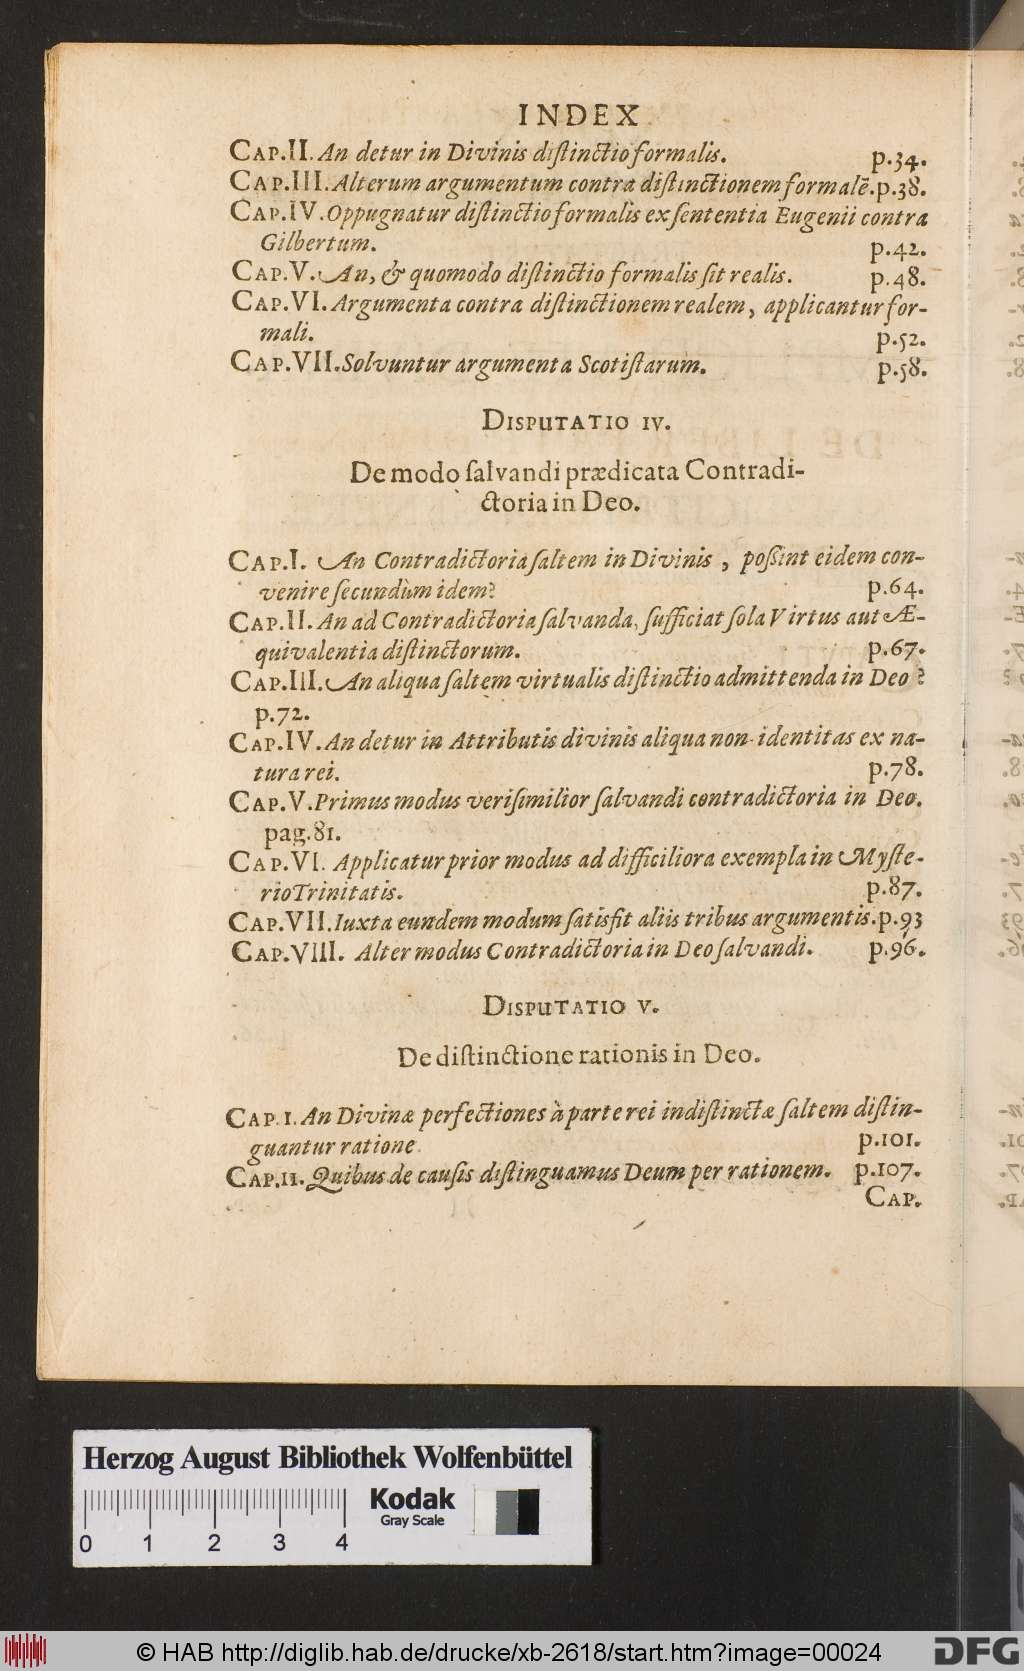 INDEX
CAP.II. An detur in Divinis distinctio formalis. p.34.
CAP.III. Alterum argumentum contra distinctionem formalē. p.38.
CAP.IV. Oppugnatur distinctio formalis ex sententia Eugenii contra
Gilbertum. p.42.
CAP.V. An, & quomodo distinctio formalis sit realis. p.48.
CAP.VI. Argumenta contra distinctionem realem, applicantur for-
mali. p.52.
CAP.VII. Solvuntur argumenta Scotistarum. p.58.
DISPUTATIO IV.
De modo salvandi prædicata Contradi-
ctoria in Deo.
CAP.I. An Contradictoria saltem in Divinis, possint eidem con-
venire secundùm idem? p.64.
CAP.II. An ad Contradictoria salvanda, sufficiat sola Virtus aut Æ-
quivalentia distinctorum. p.67.
CAP.III. An aliqua saltem virtualis distinctio admittenda in Deo?
p.72.
CAP.IV. An detur in Attributis divinis aliqua non-identitas ex na-
tura rei. p.78.
CAP.V. Primus modus verisimilior salvandi contradictoria in Deo.
pag.81.
CAP.VI. Applicatur prior modus ad difficiliora exempla in Myste-
rio Trinitatis. p.87.
CAP.VII. Iuxta eundem modum satisfit aliis tribus argumentis. p.93
CAP.VIII. Alter modus Contradictoria in Deo salvandi. p.96.
DISPUTATIO V.
De distinctione rationis in Deo.
CAP.I. An Divinæ perfectiones à parte rei indistinctæ saltem distin-
guantur ratione. p.101.
CAP.II. Quibus de causis distinguamus Deum per rationem. p.107.
CAP.
Herzog August Bibliothek Wolfenbüttel
Kodak
Gray Scale
0 1 2 3 4
© HAB http://diglib.hab.de/drucke/xb-2618/start.htm?image=00024
DFG